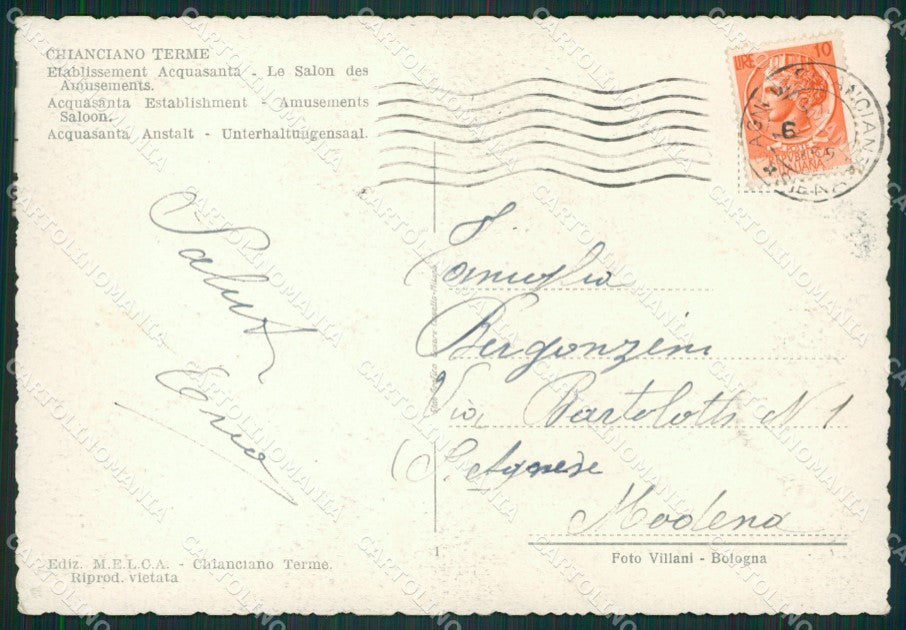 CHIANCIANO TERME
Etablissement Acquasanta - Le Salon des
Amusements.
Acquasanta Establishment - Amusements
Saloon.
Acquasanta Anstalt - Unterhaltungensaal.
LIRE 10
POSTE
REPVBBLICA
ITALIANA
6
Saluti
Famiglia
Bergonzini
Via Bartolotti N 1
(S. Agnese
Modena
1
Ediz. M.E.L.C.A. - Chianciano Terme.
Riprod. vietata
Foto Villani - Bologna
CARTOLINOMANIA